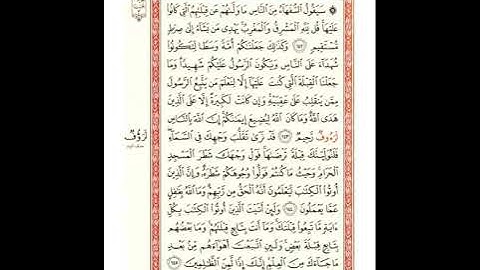 ۞ سَيَقُولُ ٱلسُّفَهَآءُ مِنَ ٱلنَّاسِ مَا وَلَّىٰهُمْ عَن قِبْلَتِهِمُ ٱلَّتِى كَانُوا۟
عَلَيْهَا ۚ قُل لِّلَّهِ ٱلْمَشْرِقُ وَٱلْمَغْرِبُ ۚ يَهْدِى مَن يَشَآءُ إِلَىٰ صِرَٰطٍ
مُّسْتَقِيمٍ ١٤٢ وَكَذَٰلِكَ جَعَلْنَٰكُمْ أُمَّةً وَسَطًا لِّتَكُونُوا۟
شُهَدَآءَ عَلَى ٱلنَّاسِ وَيَكُونَ ٱلرَّسُولُ عَلَيْكُمْ شَهِيدًا ۗ وَمَا
جَعَلْنَا ٱلْقِبْلَةَ ٱلَّتِى كُنتَ عَلَيْهَآ إِلَّا لِنَعْلَمَ مَن يَتَّبِعُ ٱلرَّسُولَ
مِمَّن يَنقَلِبُ عَلَىٰ عَقِبَيْهِ ۚ وَإِن كَانَتْ لَكَبِيرَةً إِلَّا عَلَى ٱلَّذِينَ
هَدَى ٱللَّهُ ۗ وَمَا كَانَ ٱللَّهُ لِيُضِيعَ إِيمَٰنَكُمْ ۚ إِنَّ ٱللَّهَ بِٱلنَّاسِ
لَرَؤُفٌ رَّحِيمٌ ١٤٣ قَدْ نَرَىٰ تَقَلُّبَ وَجْهِكَ فِى ٱلسَّمَآءِ ۖ
فَلَنُوَلِّيَنَّكَ قِبْلَةً تَرْضَىٰهَا ۚ فَوَلِّ وَجْهَكَ شَطْرَ ٱلْمَسْجِدِ
ٱلْحَرَامِ ۚ وَحَيْثُ مَا كُنتُمْ فَوَلُّوا۟ وُجُوهَكُمْ شَطْرَهُۥ ۗ وَإِنَّ ٱلَّذِينَ
أُوتُوا۟ ٱلْكِتَٰبَ لَيَعْلَمُونَ أَنَّهُ ٱلْحَقُّ مِن رَّبِّهِمْ ۗ وَمَا ٱللَّهُ بِغَٰفِلٍ
عَمَّا يَعْمَلُونَ ١٤٤ وَلَئِنْ أَتَيْتَ ٱلَّذِينَ أُوتُوا۟ ٱلْكِتَٰبَ بِكُلِّ
ءَايَةٍ مَّا تَبِعُوا۟ قِبْلَتَكَ ۚ وَمَآ أَنتَ بِتَابِعٍ قِبْلَتَهُمْ ۚ وَمَا بَعْضُهُم
بِتَابِعٍ قِبْلَةَ بَعْضٍ ۚ وَلَئِنِ ٱتَّبَعْتَ أَهْوَآءَهُم مِّنۢ بَعْدِ
مَا جَآءَكَ مِنَ ٱلْعِلْمِ ۙ إِنَّكَ إِذًا لَّمِنَ ٱلظَّٰلِمِينَ ١٤٥
لَرَؤُفٌ